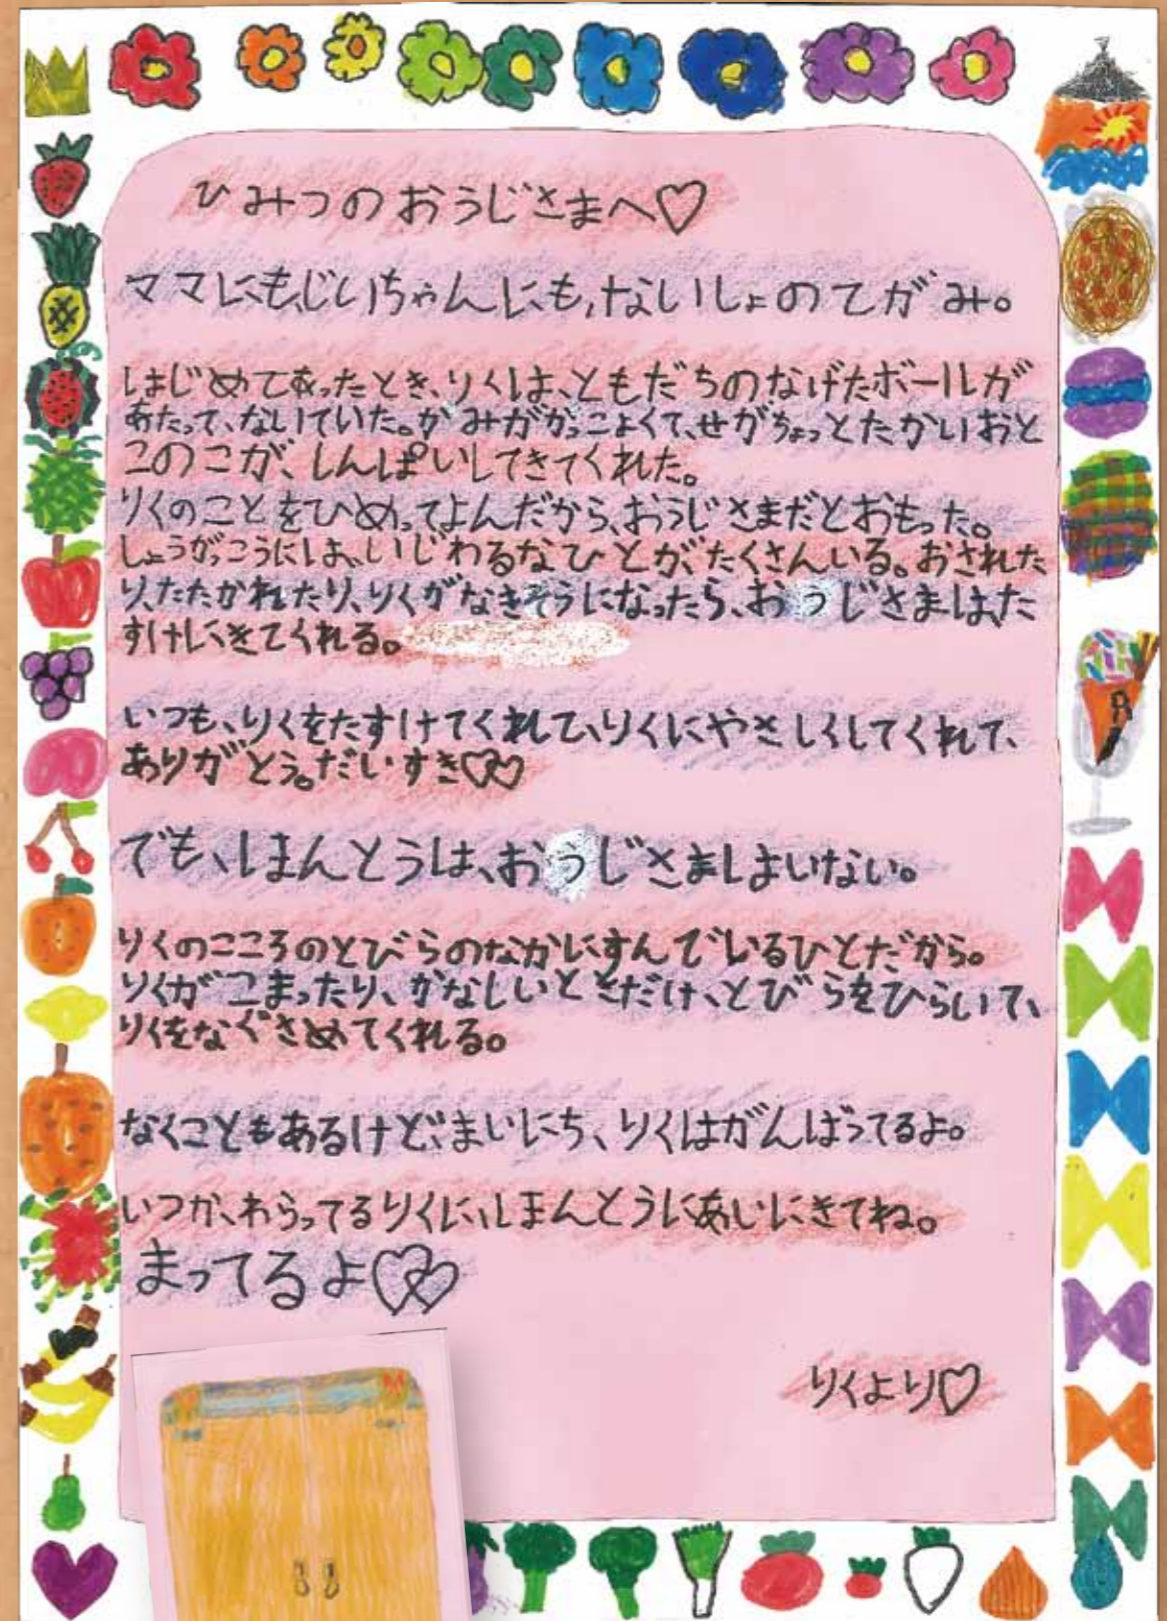 ひみつのおうじさまへ♡
ママにも、じいちゃんにも、ないしょのてがみ。
はじめてあったとき、りくは、ともだちのなげたボールが
あたって、ないていた。かみがかっこよくて、せがちょっとたかいおと
このこが、しんぱいしてきてくれた。
りくのことをひめってよんだから、おうじさまだとおもった。
しょうがっこうには、いじわるなひとが、たくさんいる。おされた
り、たたかれたり、りくがなきそうになったら、おうじさまは、た
すけにきてくれる。
いつも、りくをたすけてくれて、りくにやさしくしてくれて、
ありがとう。だいすき♡♡
でも、ほんとうは、おうじさまはいない。
りくのこころのとびらのなかにすんでいるひとだから。
りくがこまったり、かなしいときだけ、とびらをひらいて、
りくをなぐさめてくれる。
なくこともあるけど、まいにち、りくはがんばってるよ。
いつか、わらってるりくに、ほんとうにあいにきてね。
まってるよ♡♡
りくより♡